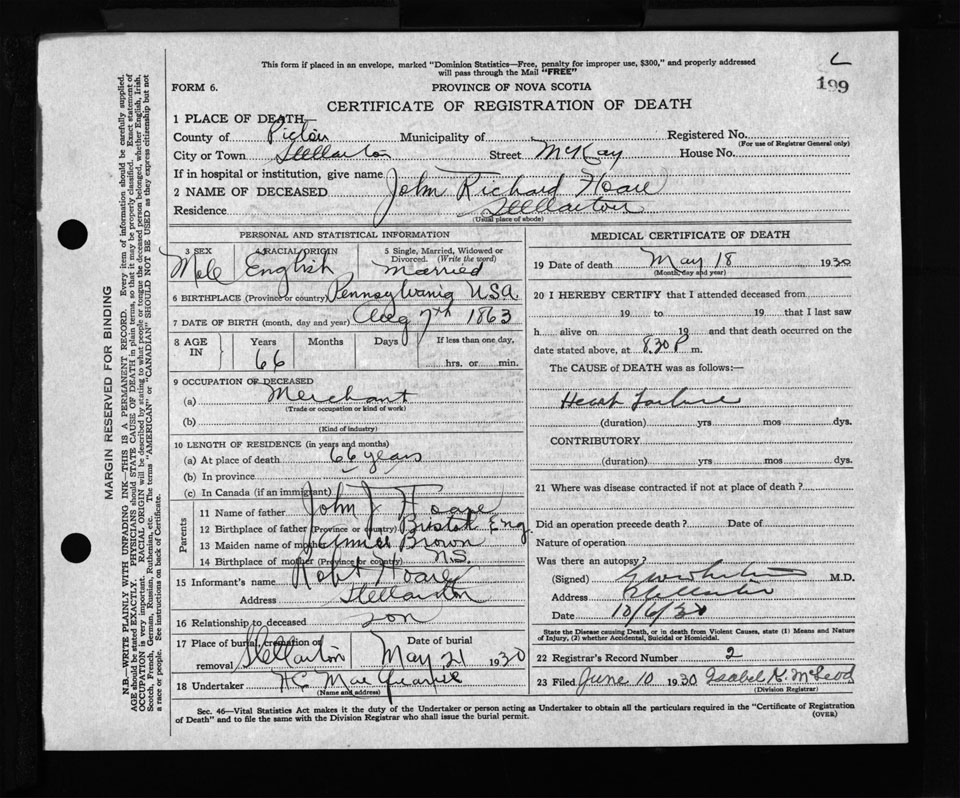 This form if placed in an envelope, marked "Dominion Statistics—Free, penalty for improper use, $300," and properly addressed
will pass through the Mail "FREE"
L
199
FORM 6.
PROVINCE OF NOVA SCOTIA
CERTIFICATE OF REGISTRATION OF DEATH
1 PLACE OF DEATH,
County of Pictou Municipality of Registered No.
(For use of Registrar General only)
City or Town Stellarton Street McKay House No.
If in hospital or institution, give name
2 NAME OF DECEASED John Richard Hoare
Residence Stellarton
(Usual place of abode)
PERSONAL AND STATISTICAL INFORMATION
3 SEX 4 RACIAL ORIGIN 5 Single, Married, Widowed or Divorced. (Write the word)
Male English married
6 BIRTHPLACE (Province or country) Pennsylvania USA
7 DATE OF BIRTH (month, day and year) Aug 7th 1863
8 AGE IN Years Months Days If less than one day,
66 hrs. or min.
9 OCCUPATION OF DECEASED
(a) Merchant
(Trade or occupation or kind of work)
(b)
(Kind of industry)
10 LENGTH OF RESIDENCE (in years and months)
(a) At place of death 66 years
(b) In province
(c) In Canada (if an immigrant)
Parents
11 Name of father John J Hoare
12 Birthplace of father (Province or country) Bristol Eng
13 Maiden name of mother Brown
14 Birthplace of mother (Province or country) N.S.
15 Informant's name Robt Hoare
Address Stellarton
16 Relationship to deceased son
17 Place of burial, cremation or removal Stellarton Date of burial May 21 1930
18 Undertaker
(Name and address)
MEDICAL CERTIFICATE OF DEATH
19 Date of death May 18 1930
(Month, day and year)
20 I HEREBY CERTIFY that I attended deceased from
19 to 19 that I last saw
h alive on 19 and that death occurred on the
date stated above, at 8.30 P m.
The CAUSE of DEATH was as follows:—
Heart Failure
(duration) yrs mos dys.
CONTRIBUTORY
(duration) yrs mos dys.
21 Where was disease contracted if not at place of death?
Did an operation precede death? Date of
Nature of operation
Was there an autopsy?
(Signed) M.D.
Address Stellarton
Date 10/6/30
State the Disease causing Death, or in death from Violent Causes, state (1) Means and Nature
of Injury, (2) whether Accidental, Suicidal or Homicidal.
22 Registrar's Record Number 2
23 Filed June 10 1930 Isabel K. McLeod
(Division Registrar)
Sec. 46—Vital Statistics Act makes it the duty of the Undertaker or person acting as Undertaker to obtain all the particulars required in the "Certificate of Registration
of Death" and to file the same with the Division Registrar who shall issue the burial permit.
(OVER)
MARGIN RESERVED FOR BINDING
N.B.—WRITE PLAINLY WITH UNFADING INK—THIS IS A PERMANENT RECORD. Every item of information should be carefully supplied.
AGE should be stated EXACTLY. PHYSICIANS should STATE CAUSE OF DEATH in plain terms, so that it may be properly classified. Exact statement of
OCCUPATION is very important. RACIAL ORIGIN will be described by stating to what people or tongue the deceased person belonged, whether English, Irish,
Scotch, French, German, Russian, Ruthenian, etc. The terms "AMERICAN" or "CANADIAN" SHOULD NOT BE USED as they express citizenship but not
a race or people. See instructions on back of Certificate.